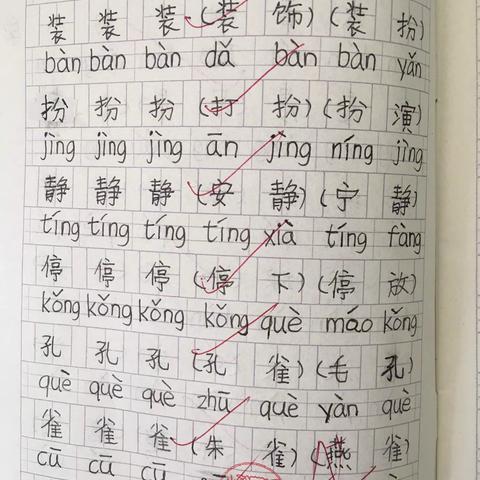 装 装 装 (装 饰) (装 扮)
bàn bàn bàn dǎ bàn bàn yǎn
扮 扮 扮 (打 扮) (扮 演)
jìng jìng jìng ān jìng níng jìng
静 静 静 (安 静) (宁 静)
tíng tíng tíng tíng xià tíng fàng
停 停 停 (停 下) (停 放)
kǒng kǒng kǒng kǒng què máo kǒng
孔 孔 孔 (孔 雀) (毛 孔)
què què què zhū què yàn què
雀 雀 雀 (朱 雀) (燕 雀)
cū cū cū